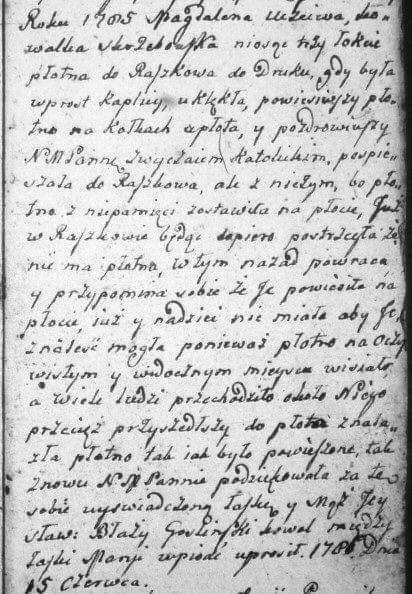 Roku 1785 Magdalena Uczciwa, Ko-
walka Skrzebowska niosąc trzy łokcie
płotna do Raszkowa do Druku, gdy była
wprost Kaplicy, uklękła, powiesiwszy pło-
tno na Kołkach u płota, y pozdrowiwszy
N M Pannę zwyczaiem Katolickim, pospie-
szała do Raszkowa, ale z niczym, bo pło-
tno z niepamięci zostawiła na płocie, Już
w Raszkowie będąc dopiero postrzegła że
nie ma płotna, w tym nazad powraca
y przypomina sobie że Je powiesiła na
płocie, już y nadziei nie miała aby Je
znaleść mogła ponieważ płotno na Oczy
wistym y widocznym mieyscu wisiało,
a Wiele ludzi przechodziło około Niego
przecięż przyszedłszy do płota znala-
zła płotno tak iak było powieszone, tak
znowu N M Pannie podziękowała za te
sobie wyświadczoną łaskę, y Mąż Jey
Sław: Błaży Gośliński kowal między
łaski Maryi wpisać uprosił. 1786 Dnia
15 Czerwca.